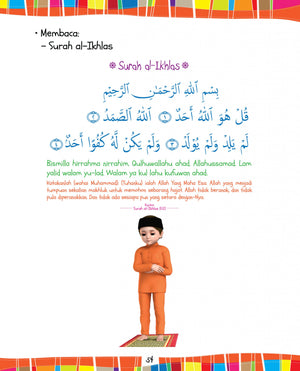 • Membaca:
– Surah al-Ikhlas
Surah al-Ikhlas
بِسْمِ ٱللَّهِ ٱلرَّحْمَـٰنِ ٱلرَّحِيمِ
قُلْ هُوَ ٱللَّهُ أَحَدٌ ۝١ ٱللَّهُ ٱلصَّمَدُ ۝٢
لَمْ يَلِدْ وَلَمْ يُولَدْ ۝٣ وَلَمْ يَكُن لَّهُۥ كُفُوًا أَحَدٌ ۝٤
Bismilla hirrahma nirrahim, Qulhuwallahu ahad, Allahussamad, Lam
yalid walam yu-lad, Walam ya kul lahu kufuwan ahad.
Katakanlah (wahai Muhammad): (Tuhanku) ialah Allah Yang Maha Esa. Allah yang menjadi
tumpuan sekalian makhluk untuk memohon sebarang hajat. Allah tidak beranak, dan tidak
pula diperanakkan. Dan tidak ada sesiapa pun yang setara dengan-Nya.
Surah al-Ikhlas